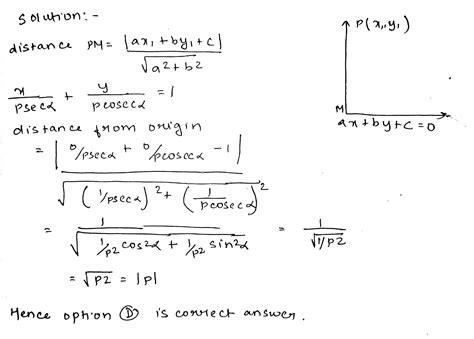 Solution:-
distance PM = |ax₁ + by₁ + c| / √(a² + b²)
P(x₁, y₁)
M
ax + by + c = 0
x/psecα + y/pcosecα = 1
distance from origin
= |0/psecα + 0/pcosecα - 1| / √((1/psecα)² + (1/pcosecα)²)
= 1 / √(1/p2 cos2α + 1/p2 sin2α) = 1/√(1/p2)
= √p2 = |p|
Hence option D is correct answer.